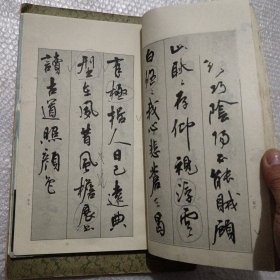 繆巧陰陽不能賊顧
此耿々存仰視浮雲
白悠々我心悲蒼天曷
有極哲人日已遠典
型在夙昔風檐展書
讀古道照顏色